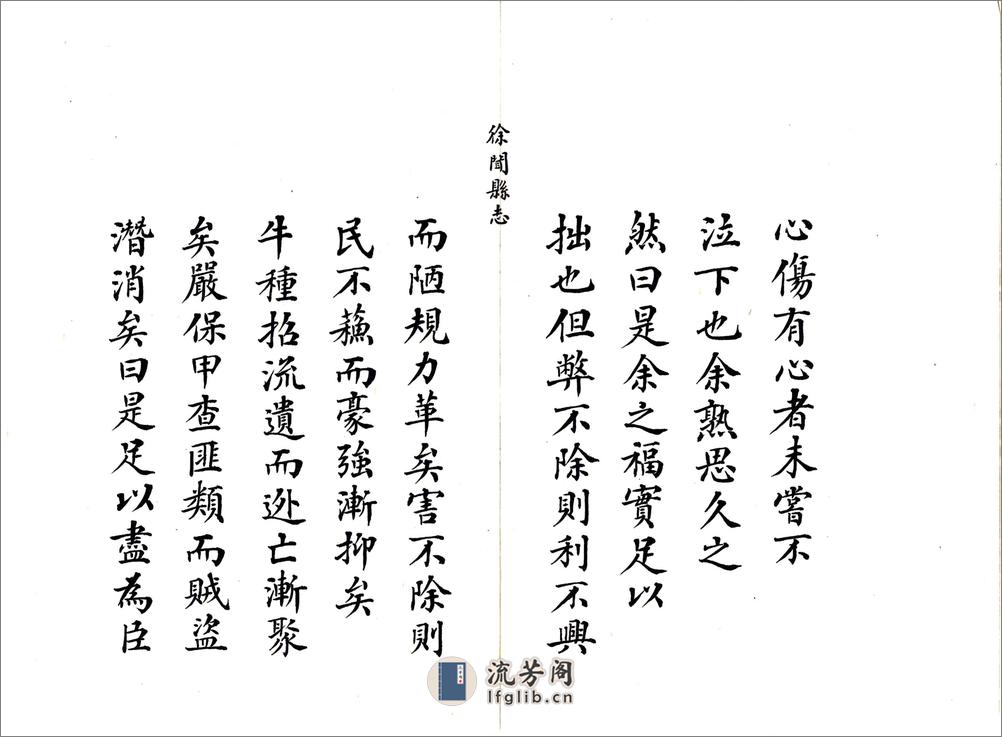 心傷有心者未嘗不
泣下也余熟思久之
然曰是余之福實足以
拙也但弊不除則利不興
徐聞縣志
而陋規力革矣害不除則
民不蘓而豪強漸抑矣
牛種招流遺而逊亡漸聚
矣嚴保甲查匪類而賊盜
潛消矣曰是足以盡為臣
流芳阁
lfglib.cn